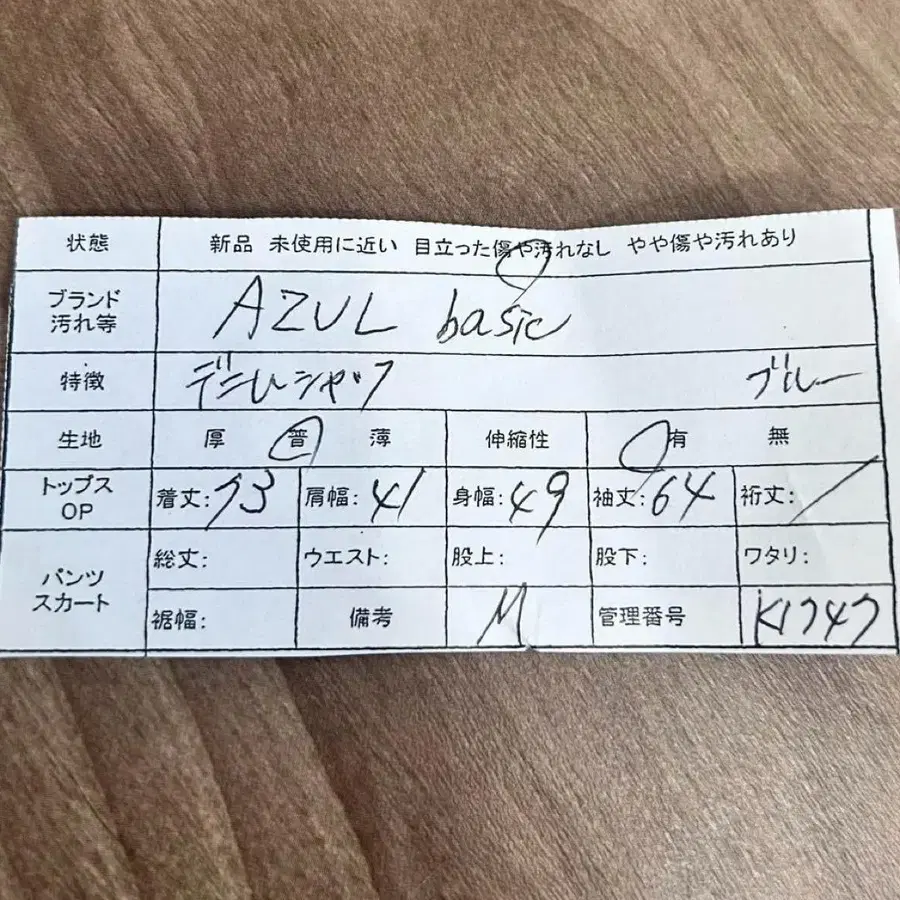 状態 新品 未使用に近い 目立った傷や汚れなし やや傷や汚れあり
ブランド 汚れ等 AZUL basic
特徴 デニムシャツ ブルー
生地 厚 普 薄 伸縮性 有 無
トップス OP 着丈:73 肩幅:41 身幅:49 袖丈:64 裄丈:/
パンツ スカート 総丈: ウエスト: 股上: 股下: ワタリ:
裾幅: 備考 M 管理番号 K1747